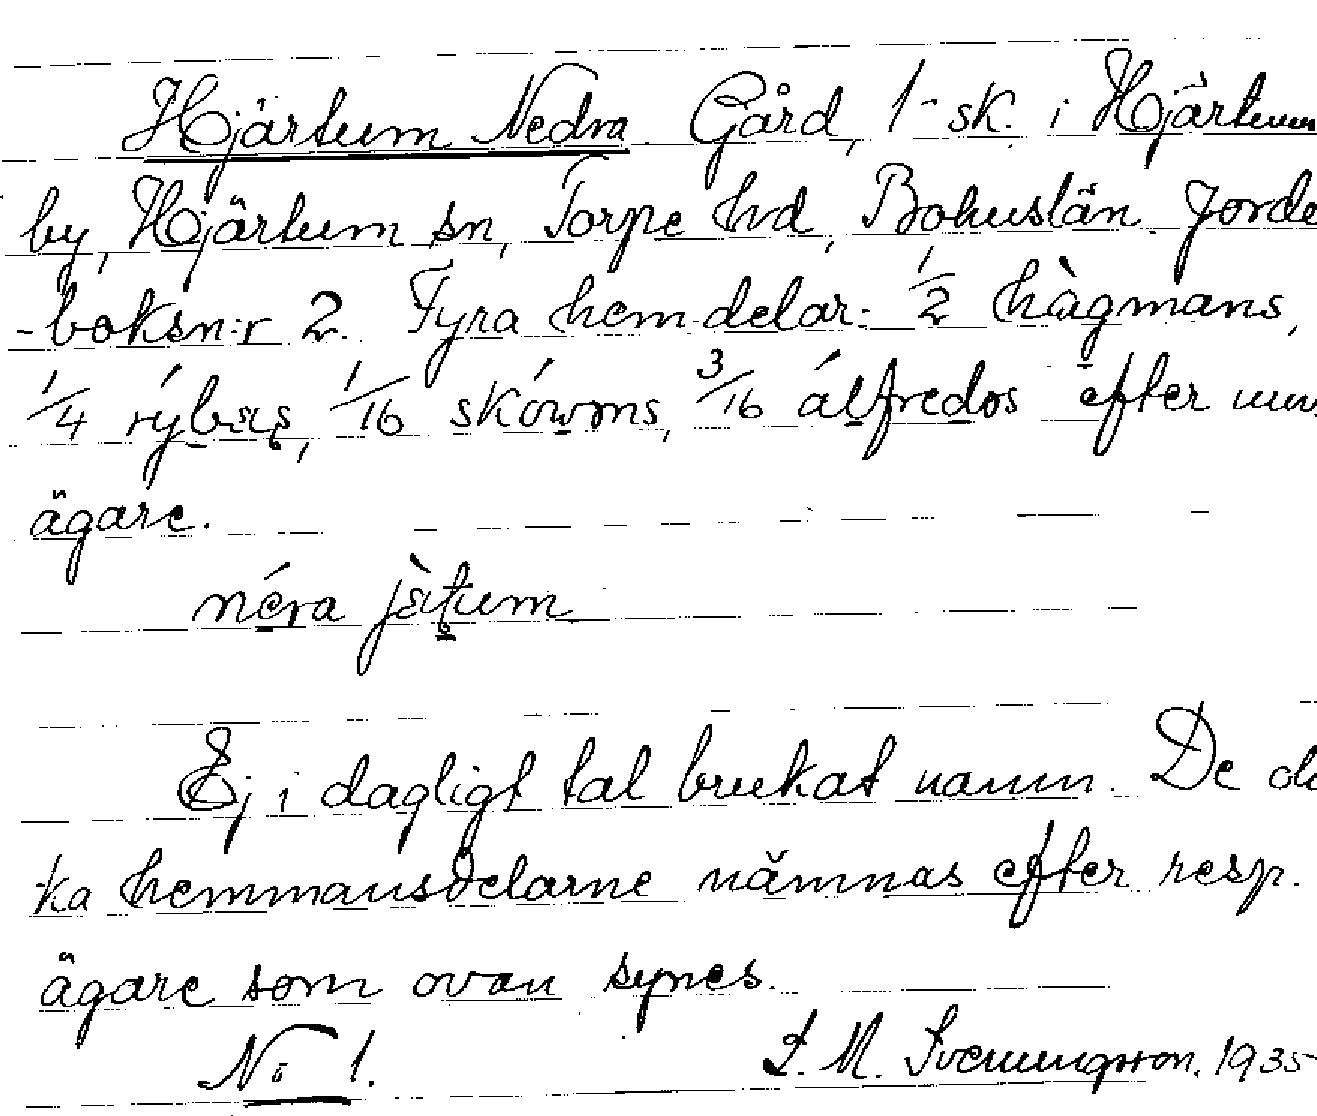 Hjärtum Nedra Gård, 1-sk. i Hjärtum
by, Hjärtum sn, Torpe hd, Bohuslän. Jorde
-boksn:r 2. Fyra hem-delar: 1/2 hàgmans,
1/4 rýbærs, 1/16 skówms, 3/16 álfredos efter
ägare.
néra jàtum
Ej i dagligt tal brukat namn. De
ka hemmansdelarne nämnas efter resp.
ägare som ovan synes.
No 1. L. M. Svenungsson. 1935